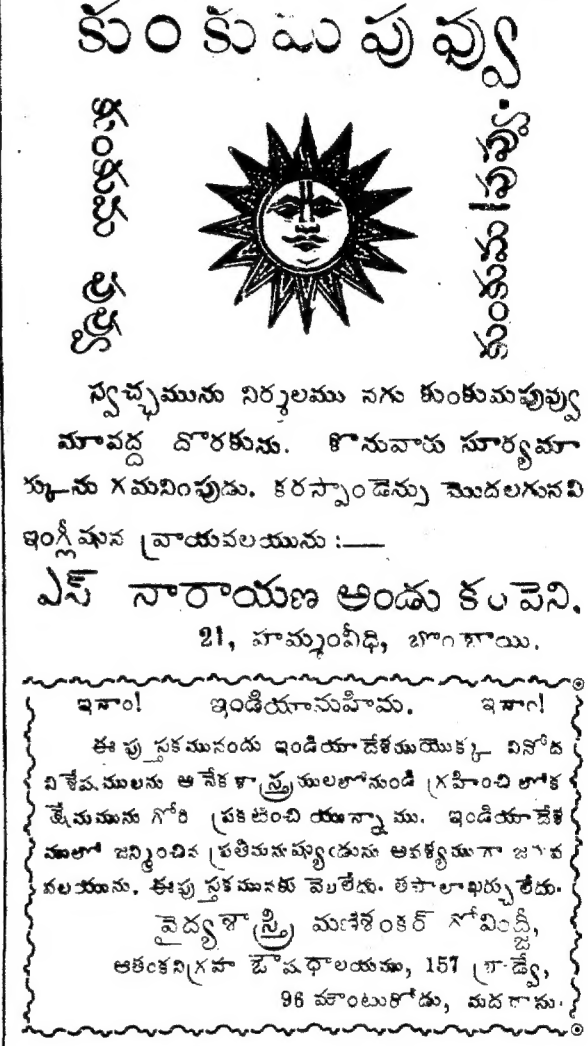 కుంకుమపువ్వు
కుంకుమ పువ్వు
కుంకుమ పువ్వు.
స్వచ్ఛమును నిర్మలము నగు కుంకుమపువ్వు
మావద్ద దొరకును. కొనువారు సూర్యమా
ర్కును గమనింపుడు. కరస్పాండెన్సు మొదలగునవి
ఇంగ్లీషున వ్రాయవలయును :—
ఎస్ నారాయణ అండు కంపెని.
21, హమ్మంవీధి, బొంబాయి.
ఇనాం! ఇండియామహిమ. ఇనాం!
ఈ పుస్తకమునందు ఇండియా దేశముయొక్క వినోద
విశేషములను అనేకశాస్త్రములలోనుండి గ్రహించి లోక
క్షేమమును గోరి ప్రకటించి యున్నాము. ఇండియాదేశ
ములో జన్మించిన ప్రతిమనుష్యుడును అవశ్యముగా జూడ
వలయును. ఈపుస్తకమునకు వెలలేదు. తపాలాఖర్చులేదు.
వైద్యశాస్త్రి మణిశంకర్ గోవింద్జీ,
ఆతంకనిగ్రహ ఔషధాలయము, 157 బ్రాడ్వే,
96 మౌంటురోడు, మదరాసు.